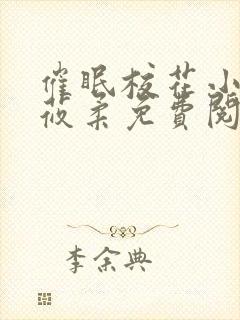 催眠校花小
莜柔免费阅
李余典